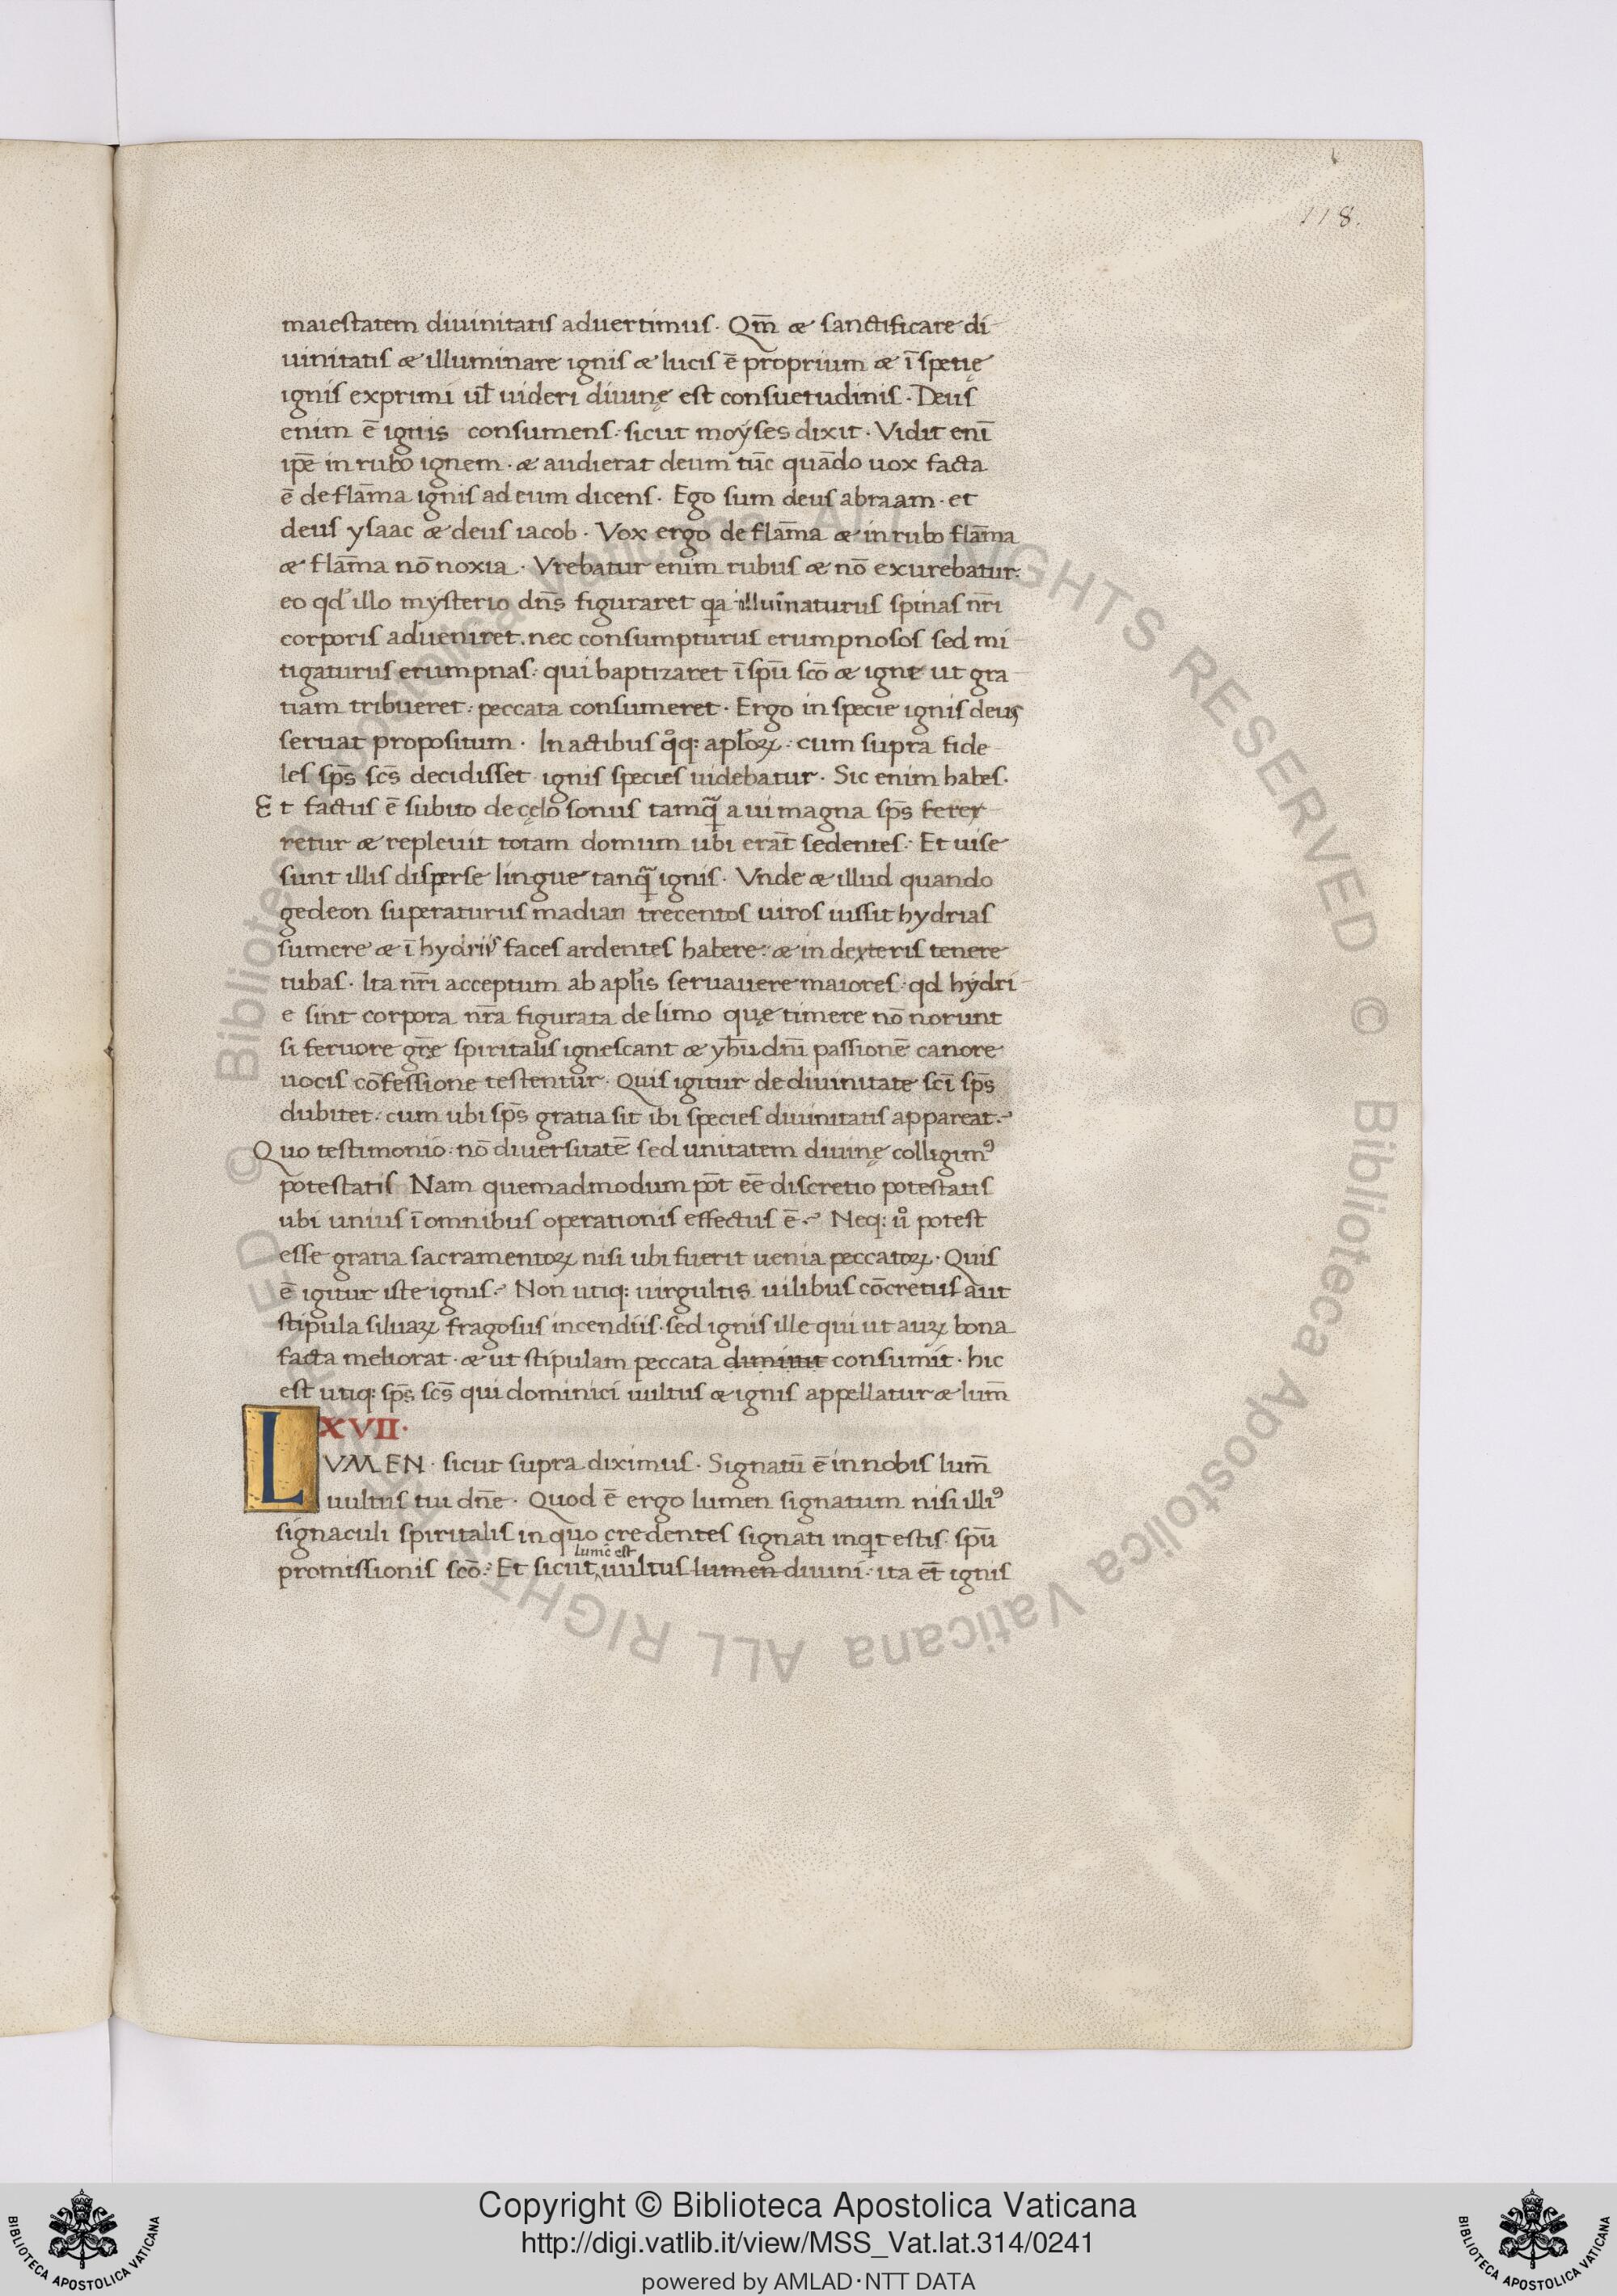 118.
maiestatem diuinitatis aduertimus. Qm̄ & sanctificare di
uinitatis & illuminare ignis & lucis ē proprium & ī spetię
ignis exprimi ul̄ uideri diuinę est consuetudinis. Deus
enim ē ignis consumens: sicut moyses dixit. Vidit enī
ip̄e in rubo ignem. & audierat deum tūc quādo uox facta
ē de flāma ignis ad eum dicens. Ego sum deus abraam. et
deus ysaac & deus iacob. Vox ergo de flāma & in rubo flāma
& flāma nō noxia. Vrebatur enim rubus & nō exurebatur:
eo qd̓ illo mysterio dn̄s figuraret qa illuīnaturus spinas nr̄i
corporis adueniret. nec consumpturus erumpnosos sed mi
tigaturus erumpnas: qui baptizaret ī spū scō & igne ut gra
tiam tribueret: peccata consumeret. Ergo in specie ignis deus
seruat propositum. In actibus qͦq: apl̄oꝝ: cum supra fide
les sp̄s sc̄s decidisset ignis species uidebatur. Sic enim habes.
Et factus ē subito de cęlo sonus tamq̄ a ui magna sp̄s ferer
retur & repleuit totam domum ubi erāt sedentes. Et uise
sunt illis disperse lingue tanq̄ ignis. Vnde & illud quando
gedeon superaturus madian trecentos uiros iussit hydrias
sumere & ī hydriis faces ardentes habere: & in dexteris tenere
tubas. Ita nr̄i acceptum ab apl̄is seruauere maiores: qd hydri
e sint corpora nr̄a figurata de limo quę timere nō norunt
si feruore gr̄ę spiritalis ignescant & yhū dn̄i passionē canore
uocis cōfessione testentur. Quis igitur de diuinitate scī sp̄s
dubitet: cum ubi sp̄s gratia sit ibi species diuinitatis appareat.
Quo testimonio: nō diuersitatē sed unitatem diuinę colligimꝰ
potestatis Nam quemadmodum pōt eē discretio potestatis
ubi unius ī omnibus operationis effectus ē. Neq: uͦ potest
esse gratia sacramentoꝝ nisi ubi fuerit uenia peccatoꝝ. Quis
ē igitur iste ignis. Non utiq: uirgultis uilibus cōcretus aut
stipula siluaꝝ fragosus incendiis. sed ignis ille qui ut auꝝ bona
facta meliorat. & ut stipulam peccata diminit consumit. hic
est utiq: sp̄s sc̄s qui dominici uultus & ignis appellatur & lum̄
XVII.
LVMEN. sicut supra diximus. Signatū ē in nobis lum̄
uultus tui dn̄e. Quod ē ergo lumen signatum nisi illiꝰ
signaculi spiritalis in quo credentes signati inqt estis. spū
lumē est
promissionis scō. Et sicut uultus lumen diuini: ita et̄ ignis
© Biblioteca Apostolica Vaticana ALL RIGHTS RESERVED © Biblioteca Apostolica Vaticana ALL RIGHTS RESERVED
Copyright © Biblioteca Apostolica Vaticana
http://digi.vatlib.it/view/MSS_Vat.lat.314/0241
powered by AMLAD·NTT DATA
BIBLIOTECA APOSTOLICA VATICANA
BIBLIOTECA APOSTOLICA VATICANA